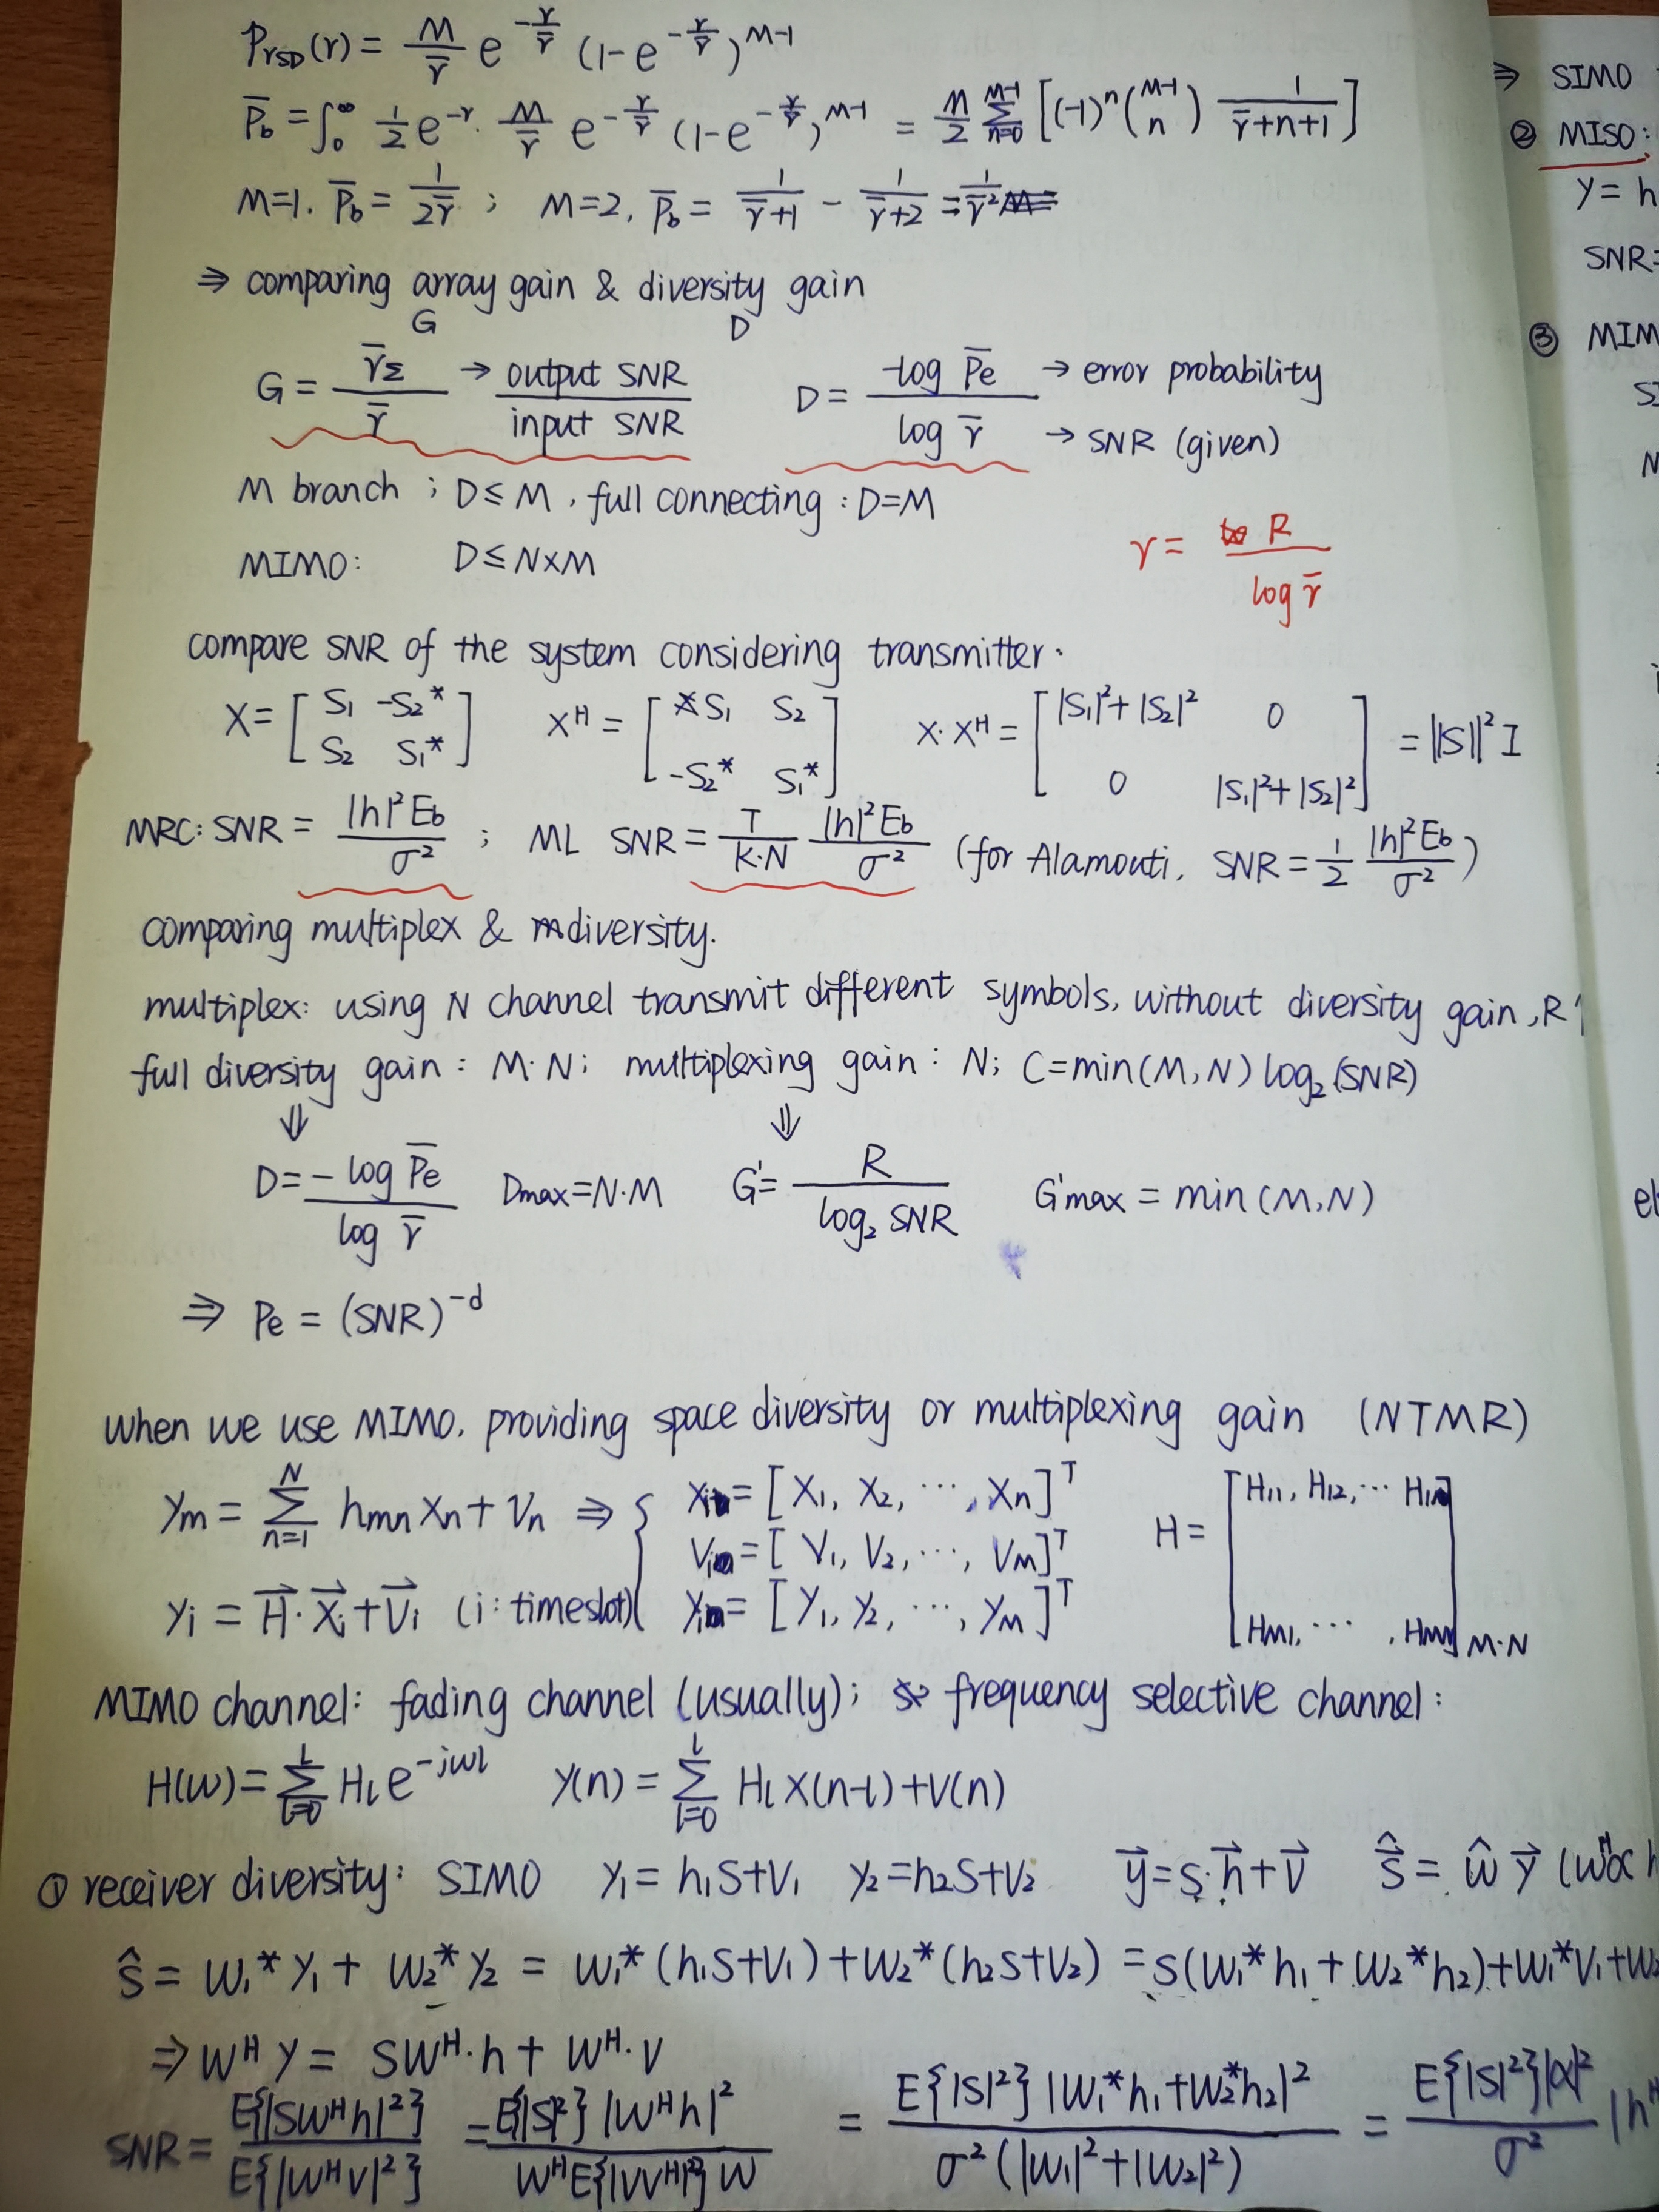 P_{γSD}(γ) = \frac{M}{\bar{γ}} e^{-\frac{γ}{\bar{γ}}} (1-e^{-\frac{γ}{\bar{γ}}})^{M-1}
\bar{P}_b = ∫_0^∞ \frac{1}{2} e^{-γ}· \frac{M}{\bar{γ}} e^{-\frac{γ}{\bar{γ}}} (1-e^{-\frac{γ}{\bar{γ}}})^{M-1} = \frac{M}{2} \sum_{n=0}^{M-1} [(-1)^n \binom{M-1}{n} \frac{1}{\bar{γ}+n+1}]
M=1. \bar{P}_b = \frac{1}{2\bar{γ}} ; M=2, \bar{P}_b = \frac{1}{\bar{γ}+1} - \frac{1}{\bar{γ}+2} = \frac{1}{\bar{γ}^2}
⇒ comparing array gain & diversity gain
G D
G = \frac{\bar{γ}_Σ}{\bar{γ}} → \frac{output SNR}{input SNR} D = \frac{-log \bar{P}_e}{log \bar{γ}} → error probability → SNR (given)
M branch ; D ≤ M , full connecting : D=M
MIMO: D ≤ N×M
γ = \frac{R}{log \bar{γ}}
compare SNR of the system considering transmitter.
X = [S_1 -S_2^*; S_2 S_1^*] X^H = [S_1 S_2; -S_2^* S_1^*] X·X^H = [|S_1|^2+|S_2|^2 0; 0 |S_1|^2+|S_2|^2] = ||S||^2 I
MRC: SNR = \frac{|h|^2 E_b}{σ^2} ; ML SNR = \frac{T}{K·N} \frac{|h|^2 E_b}{σ^2} (for Alamouti, SNR = \frac{1}{2} \frac{|h|^2 E_b}{σ^2})
comparing multiplex & diversity.
multiplex: using N channel transmit different symbols, without diversity gain, R↑
full diversity gain : M·N; multiplexing gain : N; C=min(M,N) log_2(SNR)
⇓ ⇓
D = \frac{-log \bar{P}_e}{log \bar{γ}} D_{max}=N·M G' = \frac{R}{log_2 SNR} G'_{max} = min(M,N)
⇒ P_e = (SNR)^{-d}
when we use MIMO, providing space diversity or multiplexing gain (NTMR)
y_m = \sum_{n=1}^{N} h_{mn} x_n + V_n ⇒ { X_i = [X_1, X_2, ⋯, X_n]^T
V_i = [V_1, V_2, ⋯, V_M]^T
y_i = \vec{H}·\vec{X}_i + \vec{V}_i (i: timeslot) Y_i = [Y_1, Y_2, ⋯, Y_M]^T
H = [H_{11}, H_{12}, ⋯ H_{1N}; H_{M1}, ⋯ , H_{MN}]_{M·N}
MIMO channel: fading channel (usually); frequency selective channel:
H(w) = \sum_{l=0}^{L} H_l e^{-jwl} y(n) = \sum_{l=0}^{L} H_l x(n-l) + v(n)
① receiver diversity: SIMO y_1 = h_1S+V_1 y_2=h_2S+V_2 \vec{y}=s·\vec{h}+\vec{V} \hat{\vec{s}} = \hat{w} \vec{y} (w^H∝ h
\hat{s} = w_1^* y_1 + w_2^* y_2 = w_1^*(h_1S+V_1)+w_2^*(h_2S+V_2) = s(w_1^*h_1+w_2^*h_2)+w_1^*V_1+w_2
⇒ w^H y = sw^H·h + w^H·v
SNR = \frac{E\{|sw^Hh|^2\}}{E\{|w^Hv|^2\}} = \frac{E\{|S|^2\} |w^Hh|^2}{w^HE\{|vv^H|^2\}w} = \frac{E\{|S|^2\} |w_1^*h_1+w_2^*h_2|^2}{σ^2(|w_1|^2+|w_2|^2)} = \frac{E\{|S|^2\}|α|^2}{σ^2} |h^H
⇒ SIMO
② MISO:
y = h
SNR=
③ MIM